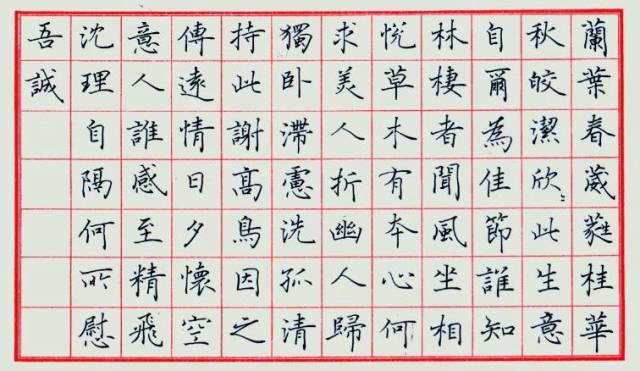 蘭葉春葳蕤桂華
秋皎潔欣〻此生意
自爾為佳節誰知
林棲者聞風坐相
悅草木有夲心何
求美人折幽人歸
獨卧滯慮洗孤清
持此謝髙鳥因之
傳遠情日夕懷空
意人誰感至精飛
沈理自隔何所慰
吾誠